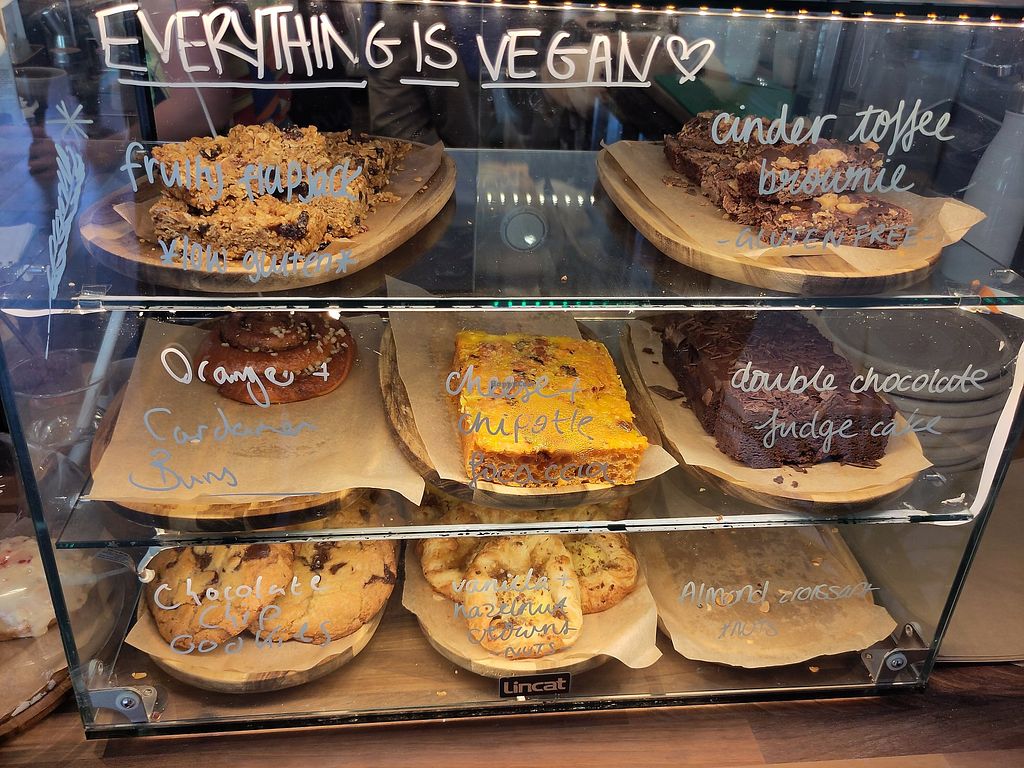 EVERYTHING IS VEGAN
fruity flapjack
*low gluten*
cinder toffee
brownie
- GLUTEN FREE -
Orange +
Cardamon
Buns
cheese +
chipotle
focaccia
double chocolate
fudge cake
Chocolate
Chip
Cookies
vanilla +
hazelnut
crowns
NUTS
Almond croissant
*NUTS
Lincat